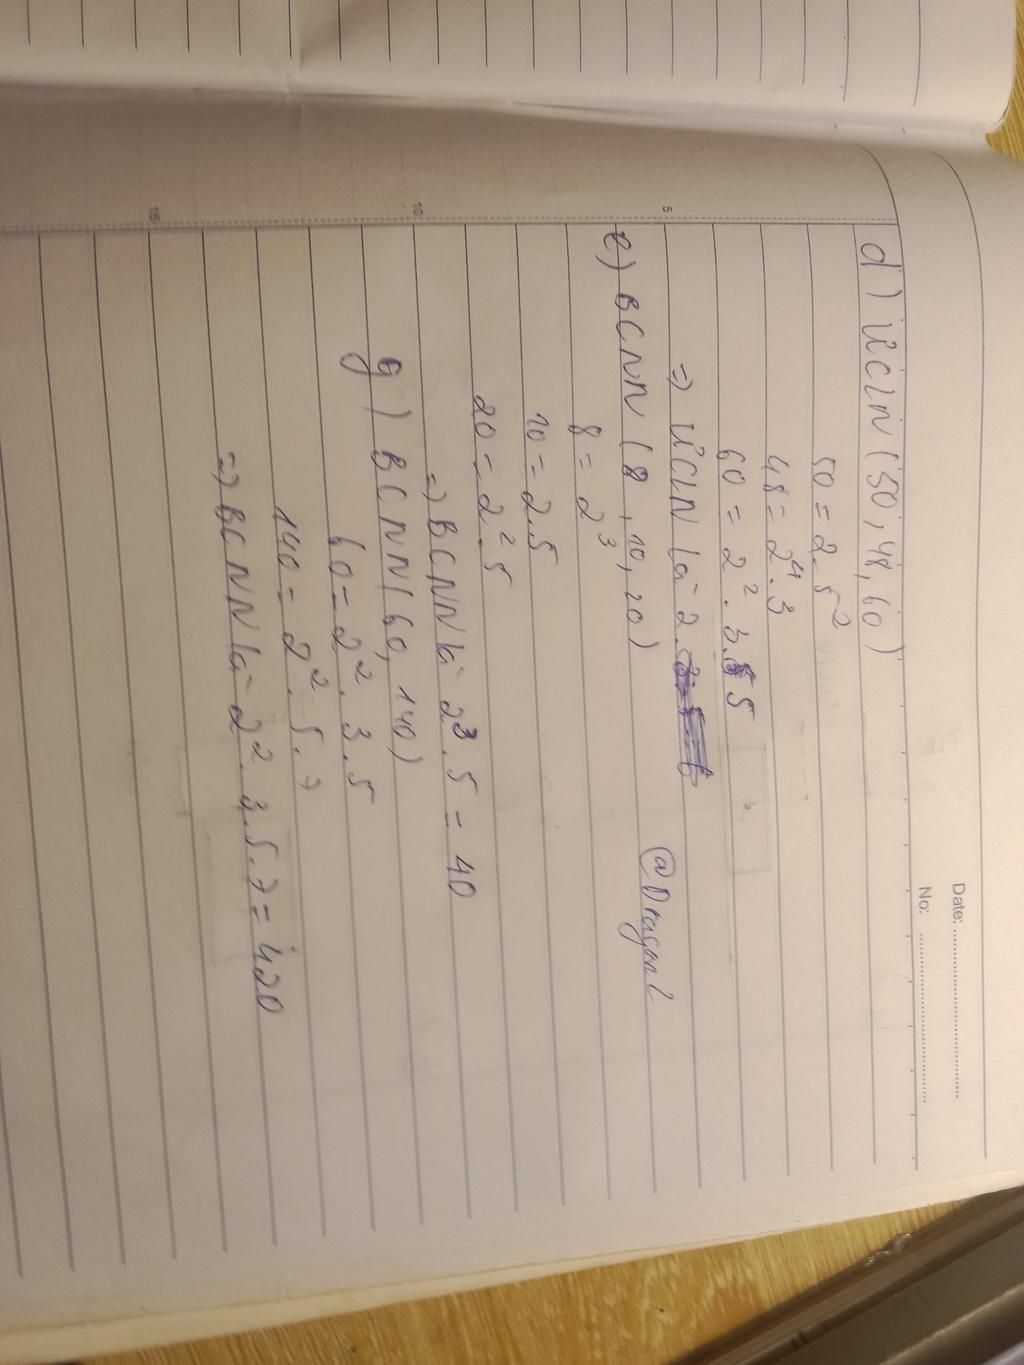 Date:
No:
d) ƯCLN (50, 48, 60)
50 = 2 . 5²
48 = 2⁴ . 3
60 = 2² . 3 . 5
=> ƯCLN là 2
@Dragon l
5
e) BCNN (8, 10, 20)
8 = 2³
10 = 2.5
20 = 2² . 5
=> BCNN là 2³ . 5 = 40
10
g) BCNN (60, 140)
60 = 2² . 3 . 5
140 = 2² . 5 . 7
=> BCNN là 2² . 3 . 5 . 7 = 420
15